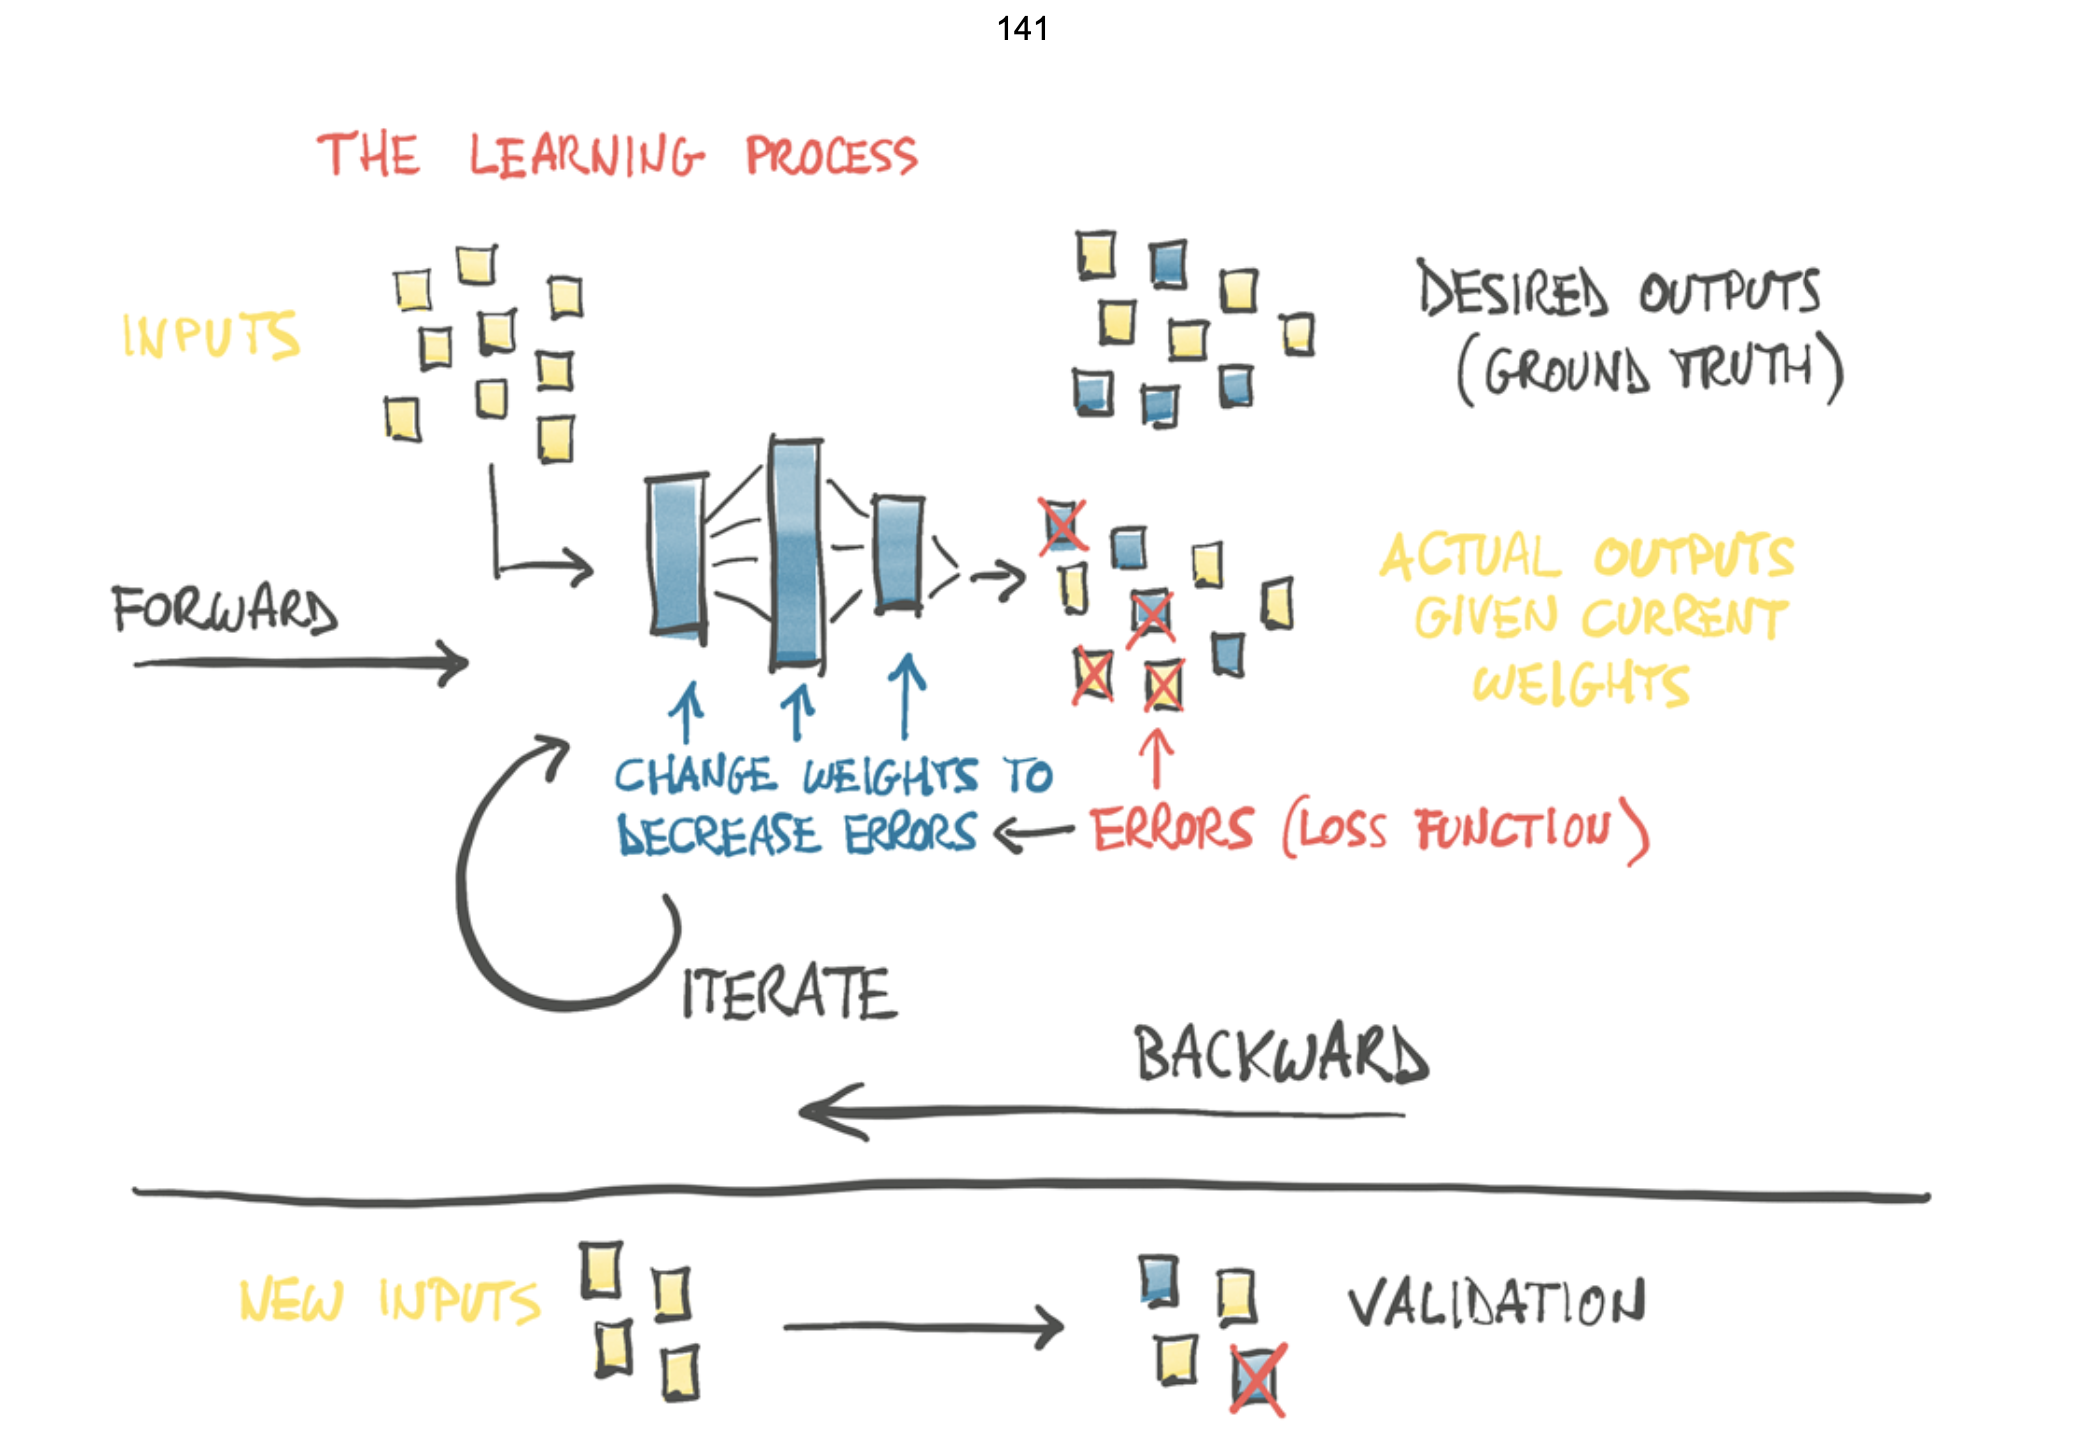 141
THE LEARNING PROCESS
INPUTS
DESIRED OUTPUTS
(GROUND TRUTH)
FORWARD
ACTUAL OUTPUTS
GIVEN CURRENT
WEIGHTS
CHANGE WEIGHTS TO
DECREASE ERRORS
ERRORS (LOSS FUNCTION)
ITERATE
BACKWARD
NEW INPUTS
VALIDATION